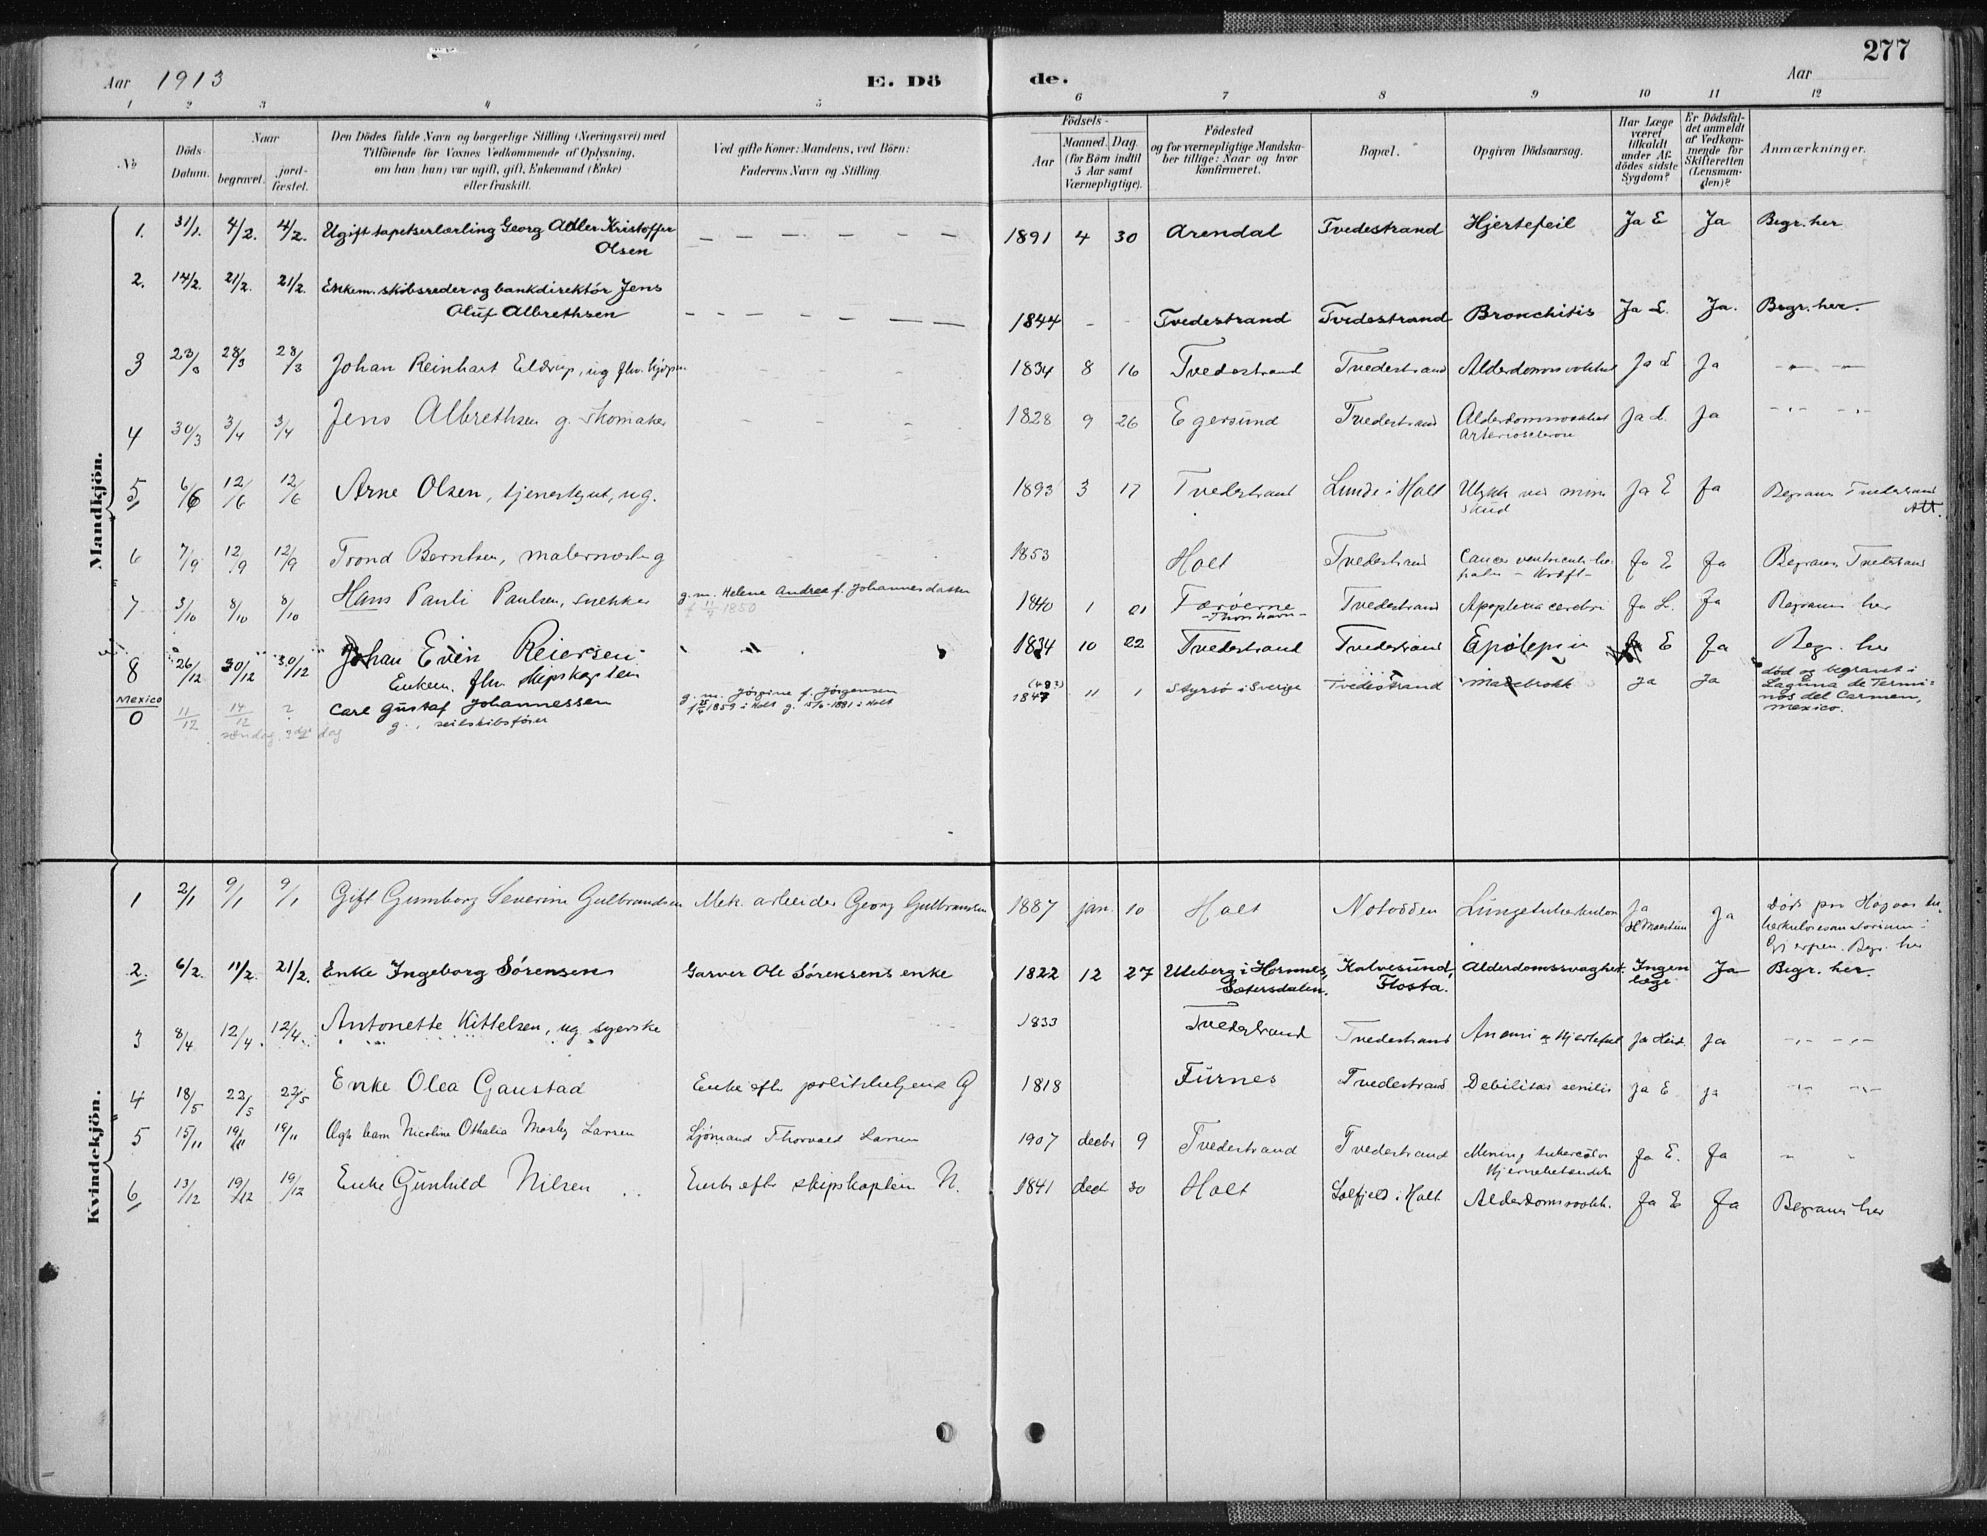 277
Aar 1913 E. Dö
de. Aar
1 2 3 4 5 6 7 8 9 10 11 12
No
Döds-Datum.
Naar
begravet.
jord-fæstet.
Den Dödes fulde Navn og borgerlige Stilling (Næringsvei) med
Tilföiende for Voxnes Vedkommende af Oplysning,
om han (hun) var ugift, gift, Enkemand (Enke)
eller fraskilt.
Ved gifte Koner: Mandens, ved Börn:
Faderens Navn og Stilling.
Födsels-
Aar
Maaned. Dag.
(for Börn indtil
5 Aar samt
Værnepligtige).
Födested
og for værnepligtige Mandska-
ber tillige: Naar og hvor
konfirmeret.
Bopæl.
Opgiven Dödsaarsag.
Har Læge
været
tilkaldt
under Af-
dödes sidste
Sygdom?
Er Dödsfal-
det anmeldt
af Vedkom-
mende for
Skifteretten
(Lensman-
den)?
Anmærkninger.
Mandkjön.
1. 31/1. 4/2. 4/2. Ugift tapetserlærling Georg Adler Kristoffer 1891 4 30 Arendal Tvedestrand Hjertefeil Ja E Ja Begr. her
Olsen
2. 14/2. 21/2. 21/2. Enkem. skibsreder og bankdirektör Jens
Oluf Albrethsen 1844 - - Tvedestrand Tvedestrand Bronchitis Ja L. Ja. Begr. her.
3 23/3 28/3 28/3 Johan Reinhart Eldrup, ug flv. kjøpm 1834 8 16 Tvedestrand Tvedestrand Ja L Ja -"- -"-
4 30/3 3/4 3/4 Jens Albrethsen g. skomaker 1828 9 26 Egersund Tvedestrand Ja L. Ja -"- -"-
5 6/6 12/6 12/6 Arne Olsen, tjenestegut, ug. 1893 3 17 Tvedestrand Lunde i Holt Ulykke ved mine Ja E Ja Begraven Tvedestrand
skud
6 7/9 12/9 12/9 Trond Berntsen, malermester g 1853 Holt Tvedestrand Cancer Ja E Ja Begraven Tvedestrand
7 3/10 8/10 8/10 Hans Pauli Paulsen, snekker g.m. Helene Andrea f. Johannesdatter 1840 1 01 Færøerne Tvedestrand Apoplexia cerebri Ja L. Ja Begraven her
1850 -Thorshavn-
8 26/12 30/12 30/12 Johan Even Reiersen 1834 10 22 Tvedestrand Tvedestrand Epilepsi E Ja Begr. her
Enkem. flv. skipskaptein
Mexico
0 11/12 14/12 ? Carl Gustaf Johannessen g. m. Jörgine f. Jörgensen 1847 11 1 Styrsö i Sverige Tvedestrand Mavebrokk Ja Ja død og begravet i
g., seilskibsfører 1859 i Holt g. 1881 i Holt Laguna de Termi-
søndag dag nos del Carmen,
Mexico.
Kvindekjön.
1 2/1 9/1 9/1 Gift Gunborg Severine Gulbrandsen Mek. arbeider Georg Gulbrandsen 1887 jan. 10 Holt Notodden Lungetuberkulose Ja Ja Døde paa
Gjerpen. Begr. her
2. 6/2. 11/2. 21/2. Enke Ingeborg Sörensen Garver Ole Sörensens enke 1822 12 27 Uleberg i Hornnes, Kalvesund, Alderdomssvaghet. Ingen Ja Begr. her.
Sætersdalen. Flosta. læge
3 8/4 12/4. 12/4. Antonette Kittelsen, ug. syerske 1833 Tvedestrand Tvedestrand Anemi og Hjertefeil Ja Ja -"- -"-
4 18/5 22/5 22/5 Enke Olea Gaustad Enke efter politibetjent G 1818 Furnes Tvedestrand Debilitas senilis Ja E Ja -"- -"-
5 15/11 19/11 19/11 Ægte barn Nicoline Othalia Mosby Larsen Sjömand Thorvald Larsen 1907 decbr 9 Tvedestrand Tvedestrand Ja E. Ja " "
Hjernebetændelse
6 13/12 19/12 19/12 Enke Gunhild Nilsen Enke efter skipskaptein N. 1841 dec 30 Holt Solfjeld i Holt Alderdomssvakh. Ja E Ja Begraven her